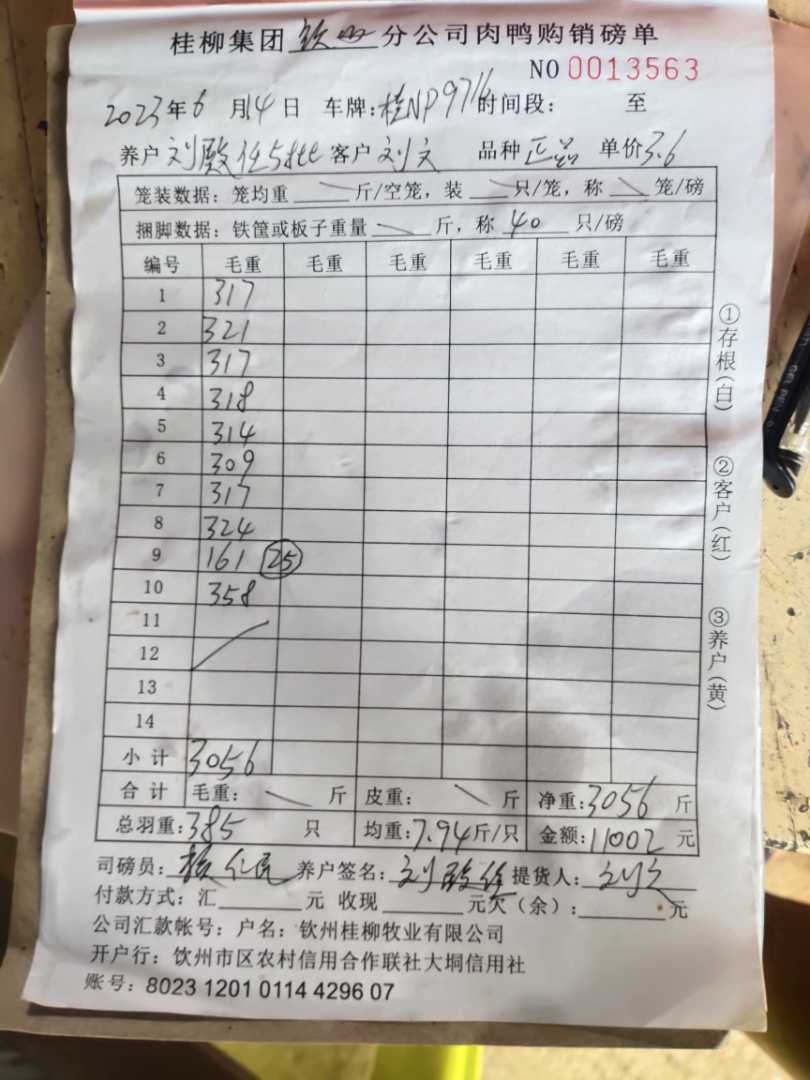 桂柳集团 钦州 分公司肉鸭购销磅单
NO 0013563
2023年6月14日 车牌:桂NP9716 时间段: 至
养户 刘殿任5批 客户 刘文 品种 正品 单价3.6
笼装数据: 笼均重 斤/空笼, 装 只/笼, 称 笼/磅
捆脚数据: 铁筐或板子重量 斤, 称 40 只/磅
编号 毛重 毛重 毛重 毛重 毛重 毛重
1 317
2 321
3 317
4 318
5 314
6 309
7 317
8 324
9 161 25
10 358
11
12
13
14
小 计 3056
合 计 毛重: 斤 皮重: 斤 净重:3056 斤
总羽重:385 只 均重:7.94斤/只 金额:11002 元
司磅员: 养户签名: 刘 提货人: 刘文
付款方式: 汇 元 收现 元欠(余): 元
公司汇款帐号: 户名: 钦州桂柳牧业有限公司
开户行: 钦州市区农村信用合作联社大垌信用社
账号: 8023 1201 0114 4296 07
①存根(白) ②客户(红) ③养户(黄)